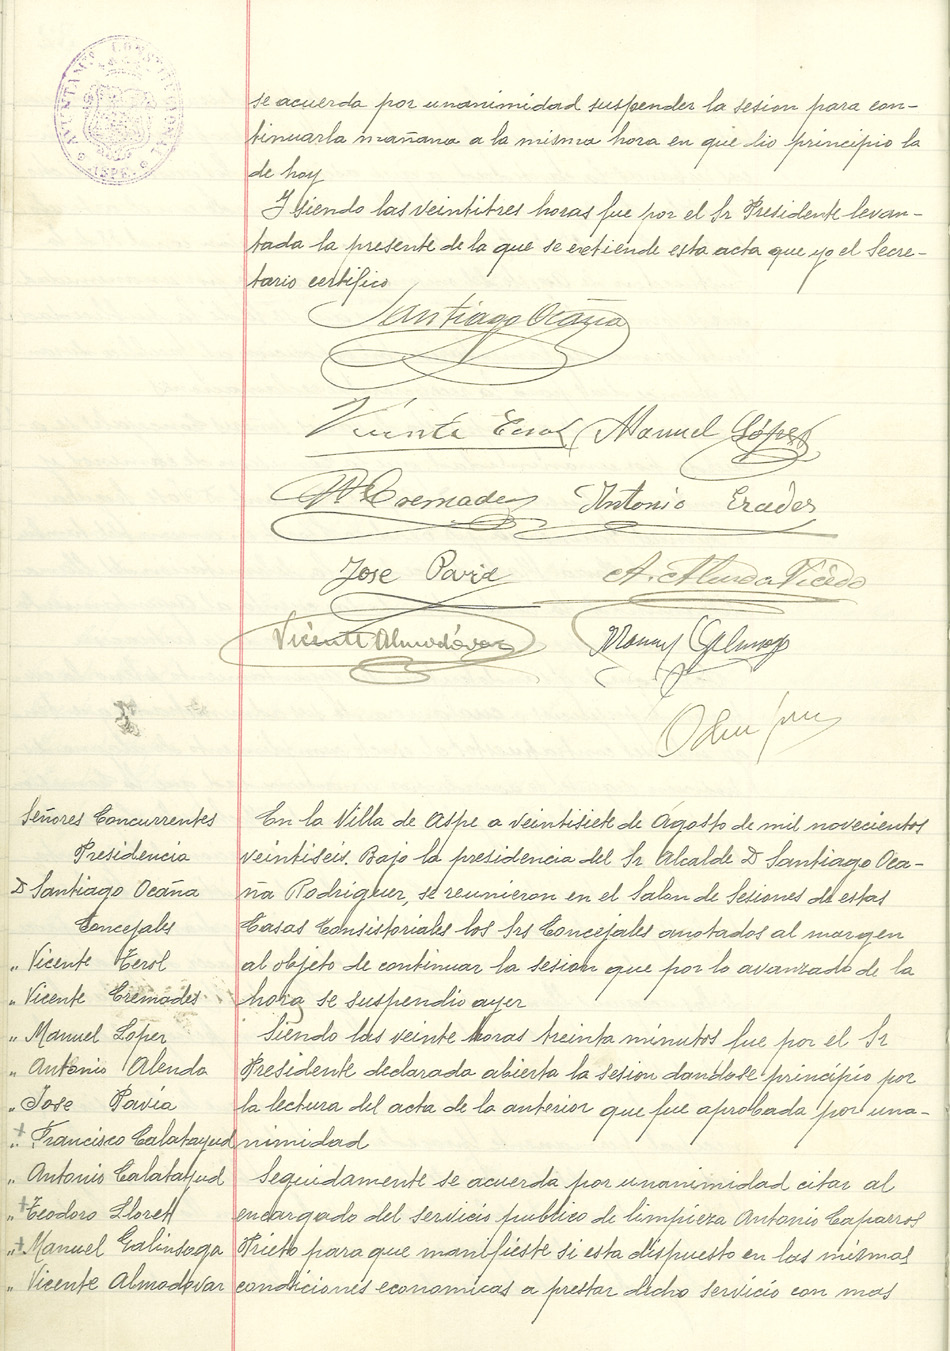 AYUNTAMTO CONSTITUCIONAL
ASPE
se acuerda por unanimidad suspender la sesion para con-
tinuarla mañana a la misma hora en que dio principio la
de hoy
Y siendo las veintitres horas fue por el Sr Presidente levan-
tada la presente de la que se extiende esta acta que yo el Secre-
tario certifico
Santiago Ocaña
Vicente Manuel López
Cremades Antonio Erades
Jose Pavia A. Alenda Vicedo
Vicente Almodóvar Manuel Galinsoga
Señores Concurrentes
Presidencia
D Santiago Ocaña
Concejales
" Vicente Terol
" Vicente Cremades
" Manuel Lopez
" Antonio Alenda
" Jose Pavia
" + Francisco Calatayud
" Antonio Calatayud
" + Teodoro Lloret
" + Manuel Galinsoga
" Vicente Almodovar
En la Villa de Aspe a veintisiete de Agosto de mil novecientos
veintiseis. Bajo la presidencia del Sr Alcalde D Santiago Oca-
ña Rodriguez, se reunieron en el Salon de Sesiones de estas
Casas Consistoriales los Srs Concejales anotados al margen
al objeto de continuar la sesion que por lo avanzado de la
hora se suspendio ayer
Siendo las veinte horas treinta minutos fue por el Sr
Presidente declarada abierta la sesion dandose principio por
la lectura del acta de la anterior que fue aprobada por una-
nimidad
Seguidamente se acuerda por unanimidad citar al
encargado del servicio publico de limpieza Antonio Caparros
Prieto para que manifieste si esta dispuesto en las mismas
condiciones economicas a prestar dicho servicio con mas